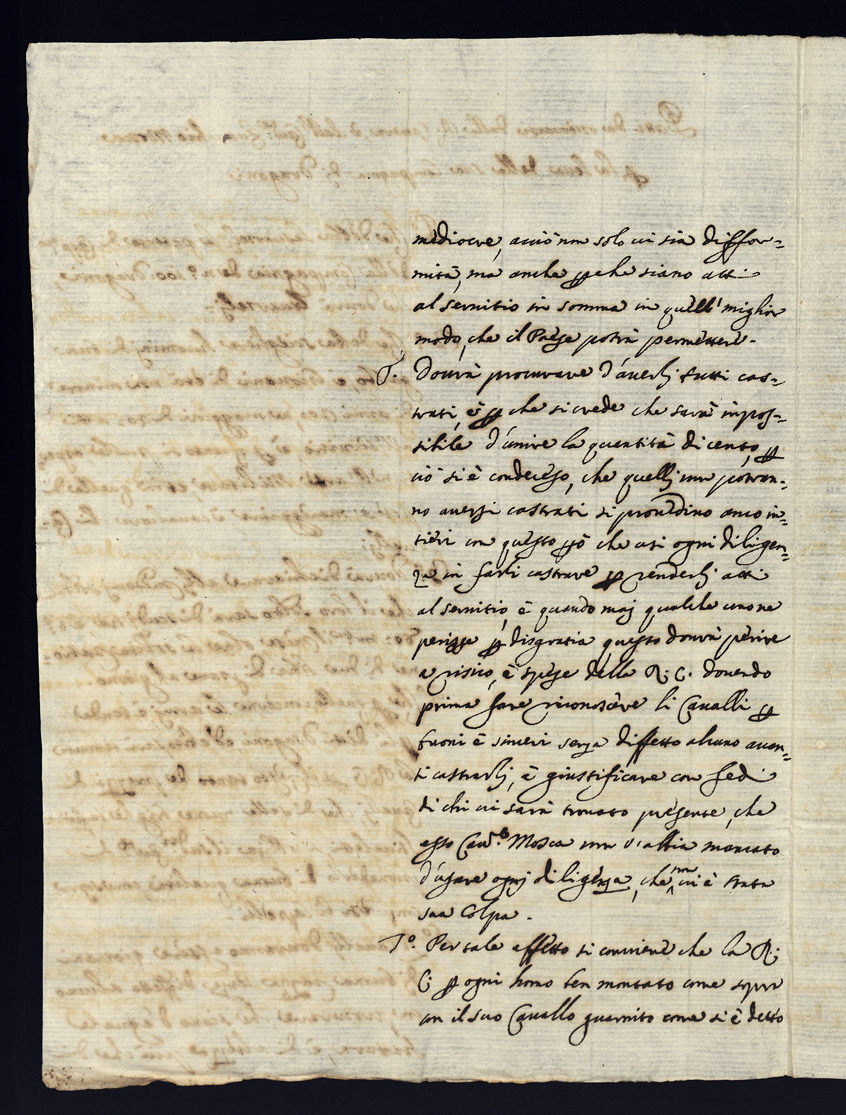 mediocre, acciò non solo vi sia diffor-
mità, mà anche perche siano atti
al servitio in somma in quell' miglior
modo, che il Paese potrà permettere.
Dovrà procurare d'averli tutti cas-
trati, è perche si crede che sarà impos-
sibile d'unire la quantità di cento, per
ciò si è condeceso, che quelli non potran-
no aversi castrati si provedino anco in-
tieri con questo però che usi ogni diligen-
za in farli castrare per renderli atti
al servitio, è quando mai qualche uno ne
perisse per disgratia questo dovrà perire
a risico, è spese della R. C. dovendo
prima fare riconoscere li Cavalli per
buoni è sinceri senza diffetto alcuno avan-
ti castrarli, è giustificare con fedi
di chi vi sarà trovato presente, che
esso Cav.º Mosca non v'abbia mancato
d'usare ogni diligenza, che non vi è stata
sua Colpa.
Per tale effetto si conviene che la R.
C. per ogni homo ben montato come sopra
con il suo Cavallo guarnito come si è detto